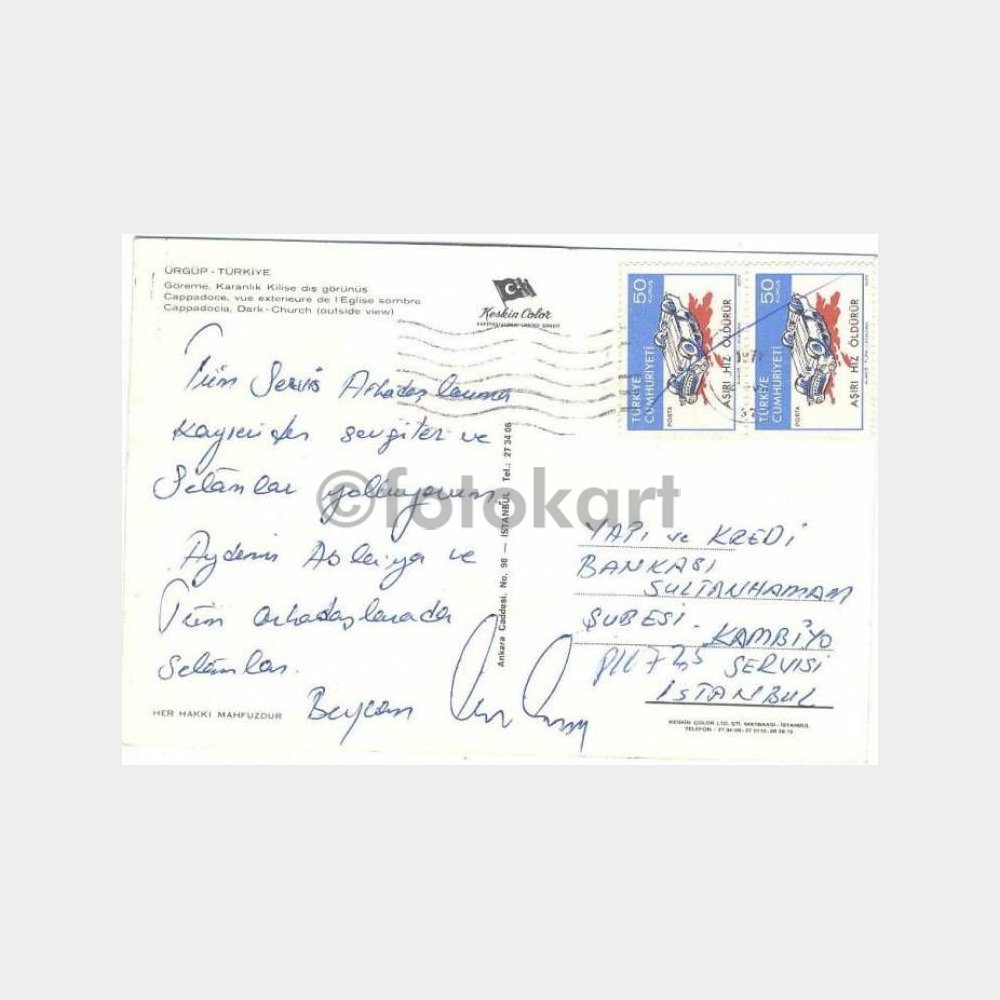 ÜRGÜP - TÜRKİYE
Göreme, Karanlık Kilise dış görünüş
Cappadoce, vue exterieure de l'Eglise sombre
Cappadocia, Dark-Church (outside view)
Keskin Color
50 KURUŞ
TÜRKİYE CUMHURİYETİ
POSTA
AŞIRI HIZ ÖLDÜRÜR
50 KURUŞ
TÜRKİYE CUMHURİYETİ
POSTA
AŞIRI HIZ ÖLDÜRÜR
Tüm Servis Arkadaşlarıma
Kayseriden sevgiler ve
Selâmlar yolluyorum.
Ablaya ve
Tüm arkadaşlarada
Selâmlar.
Beycan
©fotokart
Ankara Caddesi. No. 98 — İSTANBUL Tel.: 27 34 06
YAPI ve KREDİ
BANKASI
SULTANHAMAM
ŞUBESİ.
KAMBİYO
SERVİSİ
İSTANBUL
HER HAKKI MAHFUZDUR
KESKİN COLOR LTD. ŞTİ. MATBAASI - İSTANBUL